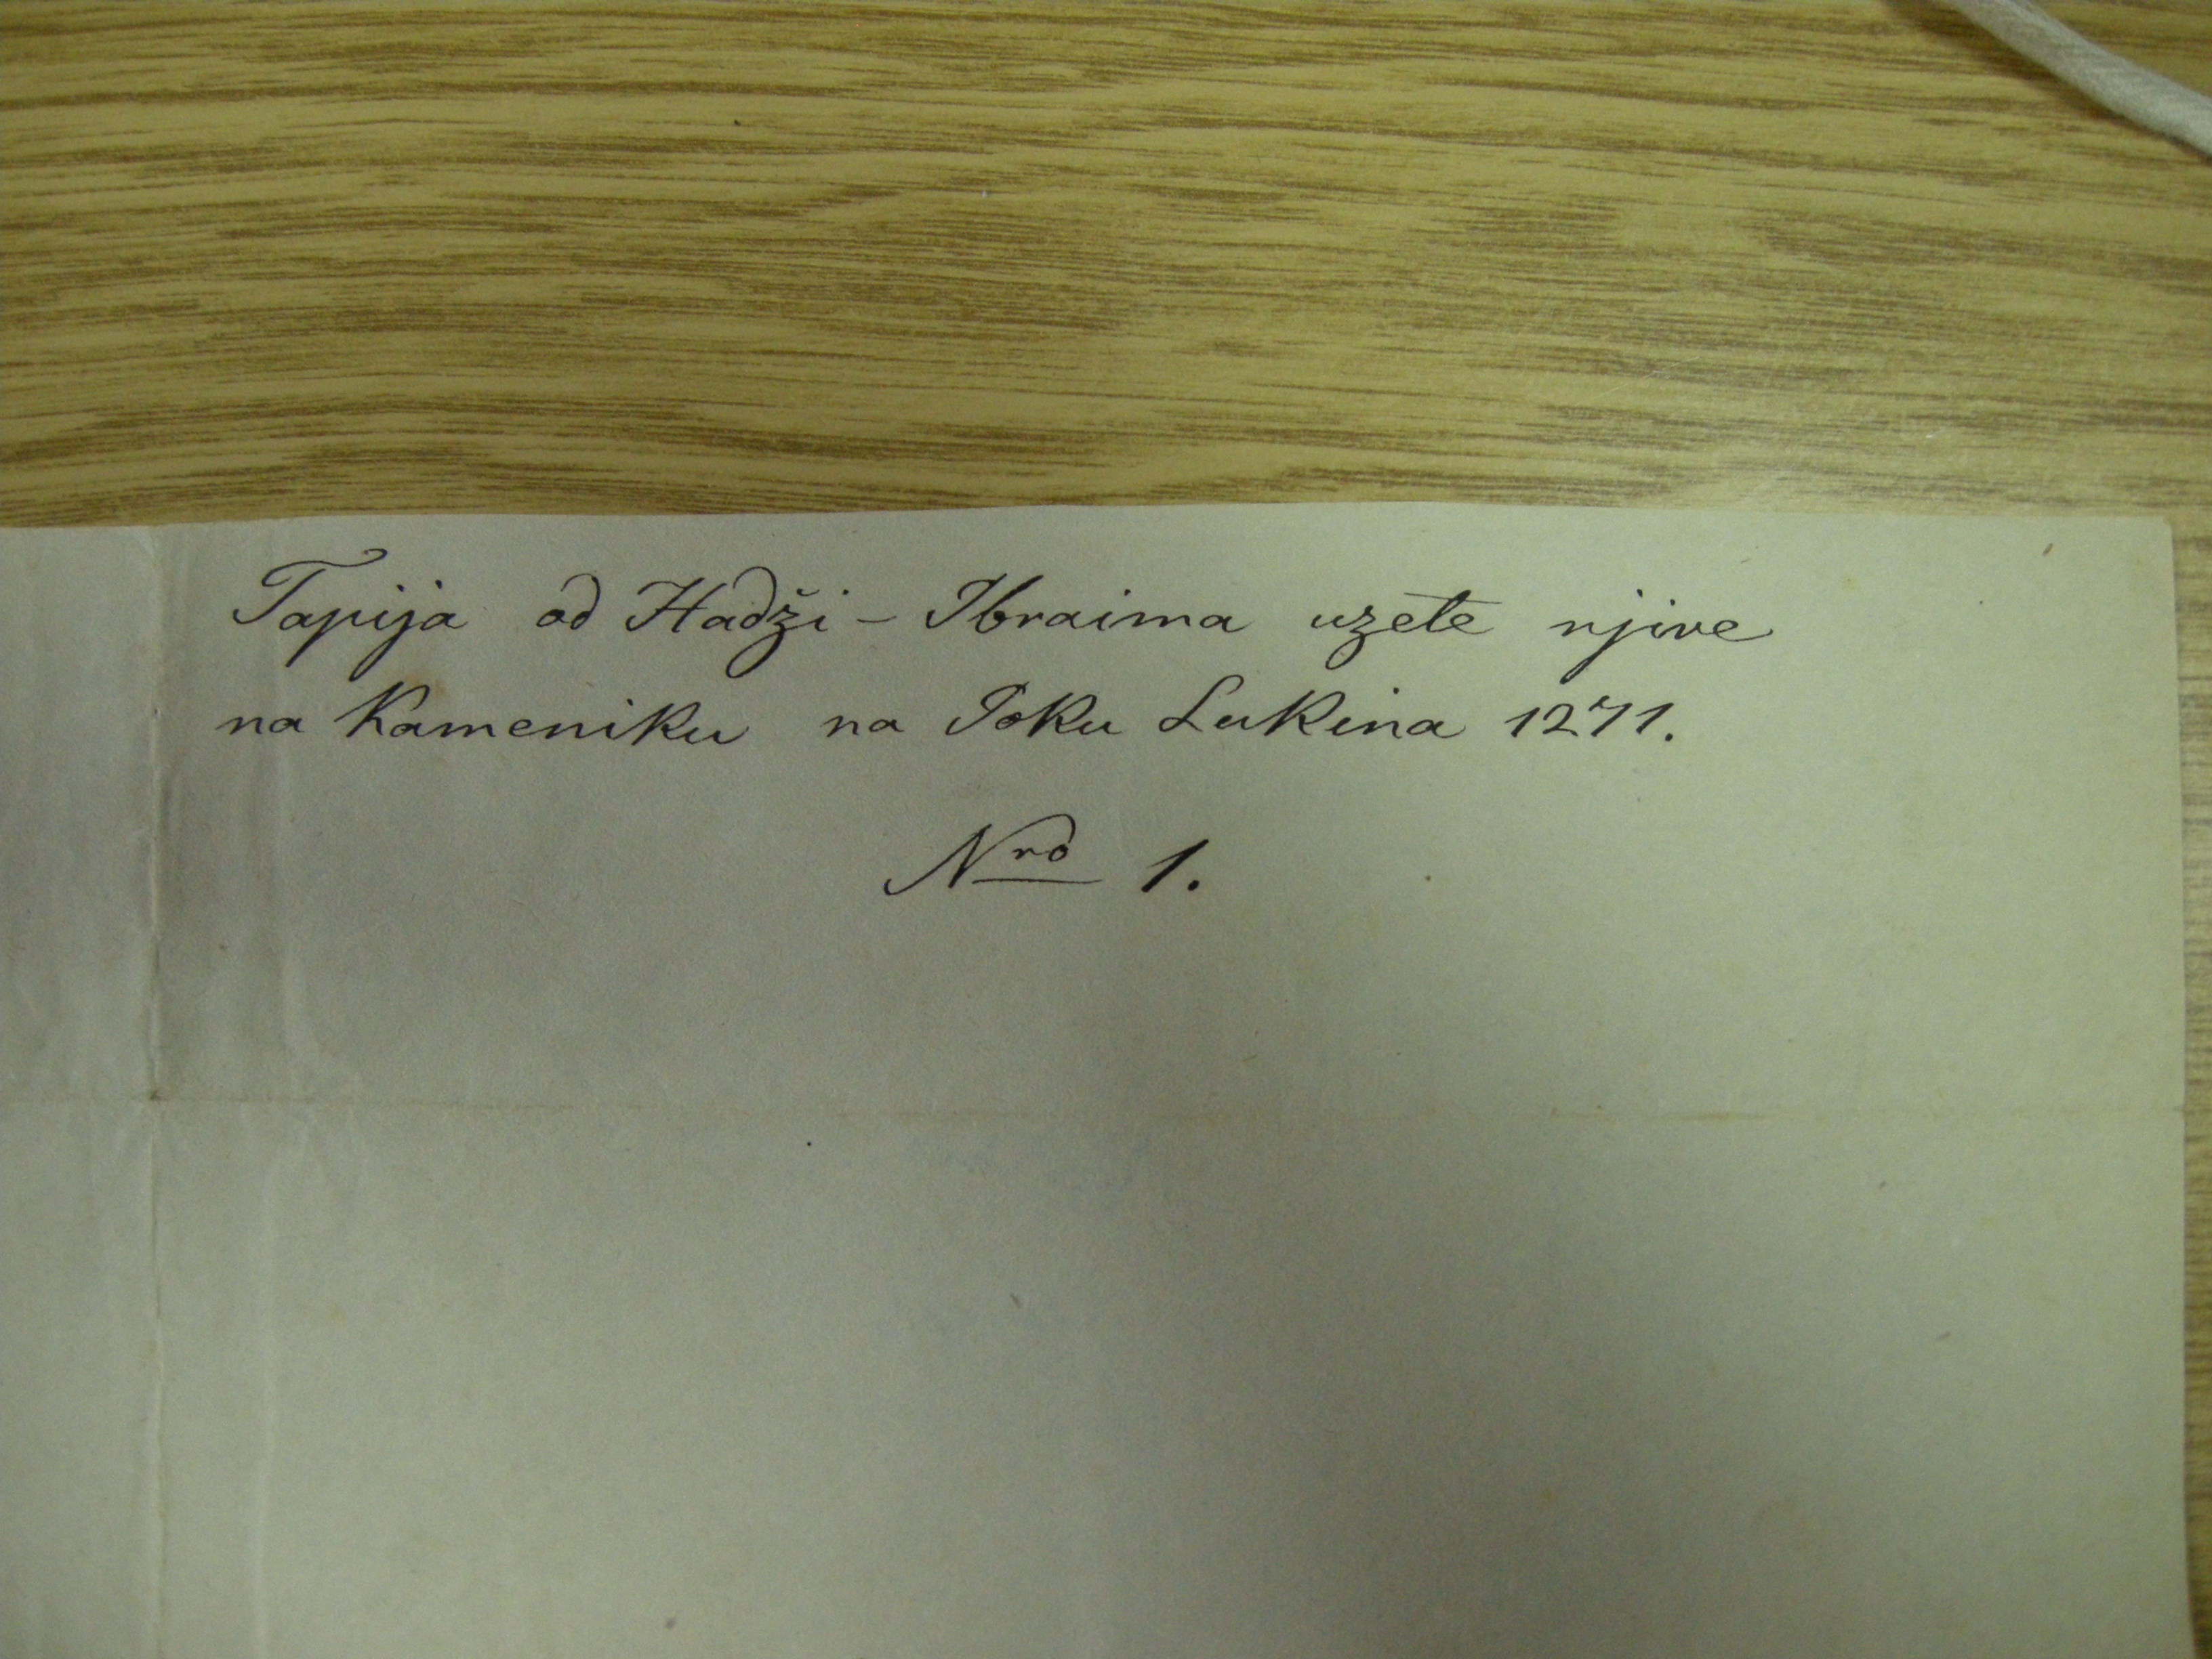 Tapija od Hadži - Ibraima uzete njive
na Kameniku na Joku Lukina 1271.
Nro 1.